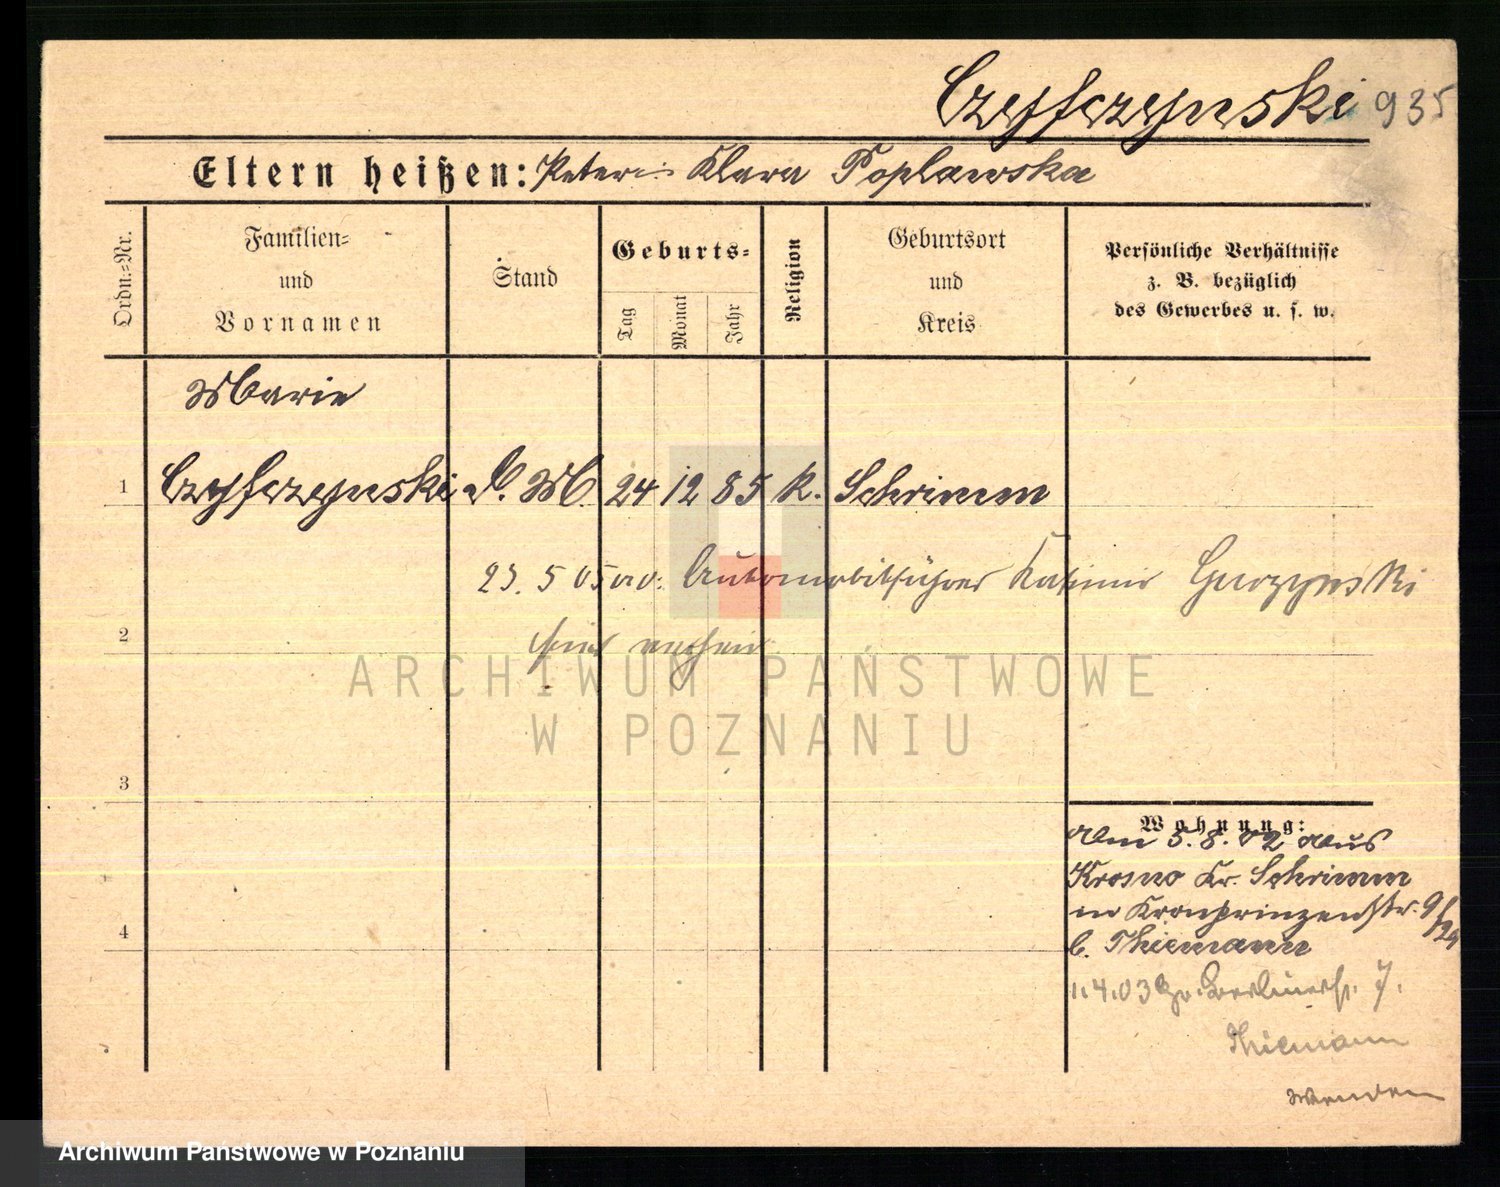 Czyfczynski 935
Eltern heißen: Peter u. Klara Poplawska
Ordn.=Nr.
Familien=
und
Vornamen
Stand
Geburts=
Tag
Monat
Jahr
Religion
Geburtsort
und
Kreis
Persönliche Verhältnisse
z. B. bezüglich
des Gewerbes u. s. w.
Marie
1 Czyfczynski D. M. 24 12 85 k. Schrimm
23. 5 05 Automobilführer Kasimir
2
ARCHIWUM PAŃSTWOWE
W POZNANIU
3
Wohnung:
Am 5.8.02 aus
Krosno Kr. Schrimm
in Kronprinzenstr. 9/
4 b. Thiemann
1.4.03 Berlinerst. 7.
Thiemann
wenden
Archiwum Państwowe w Poznaniu